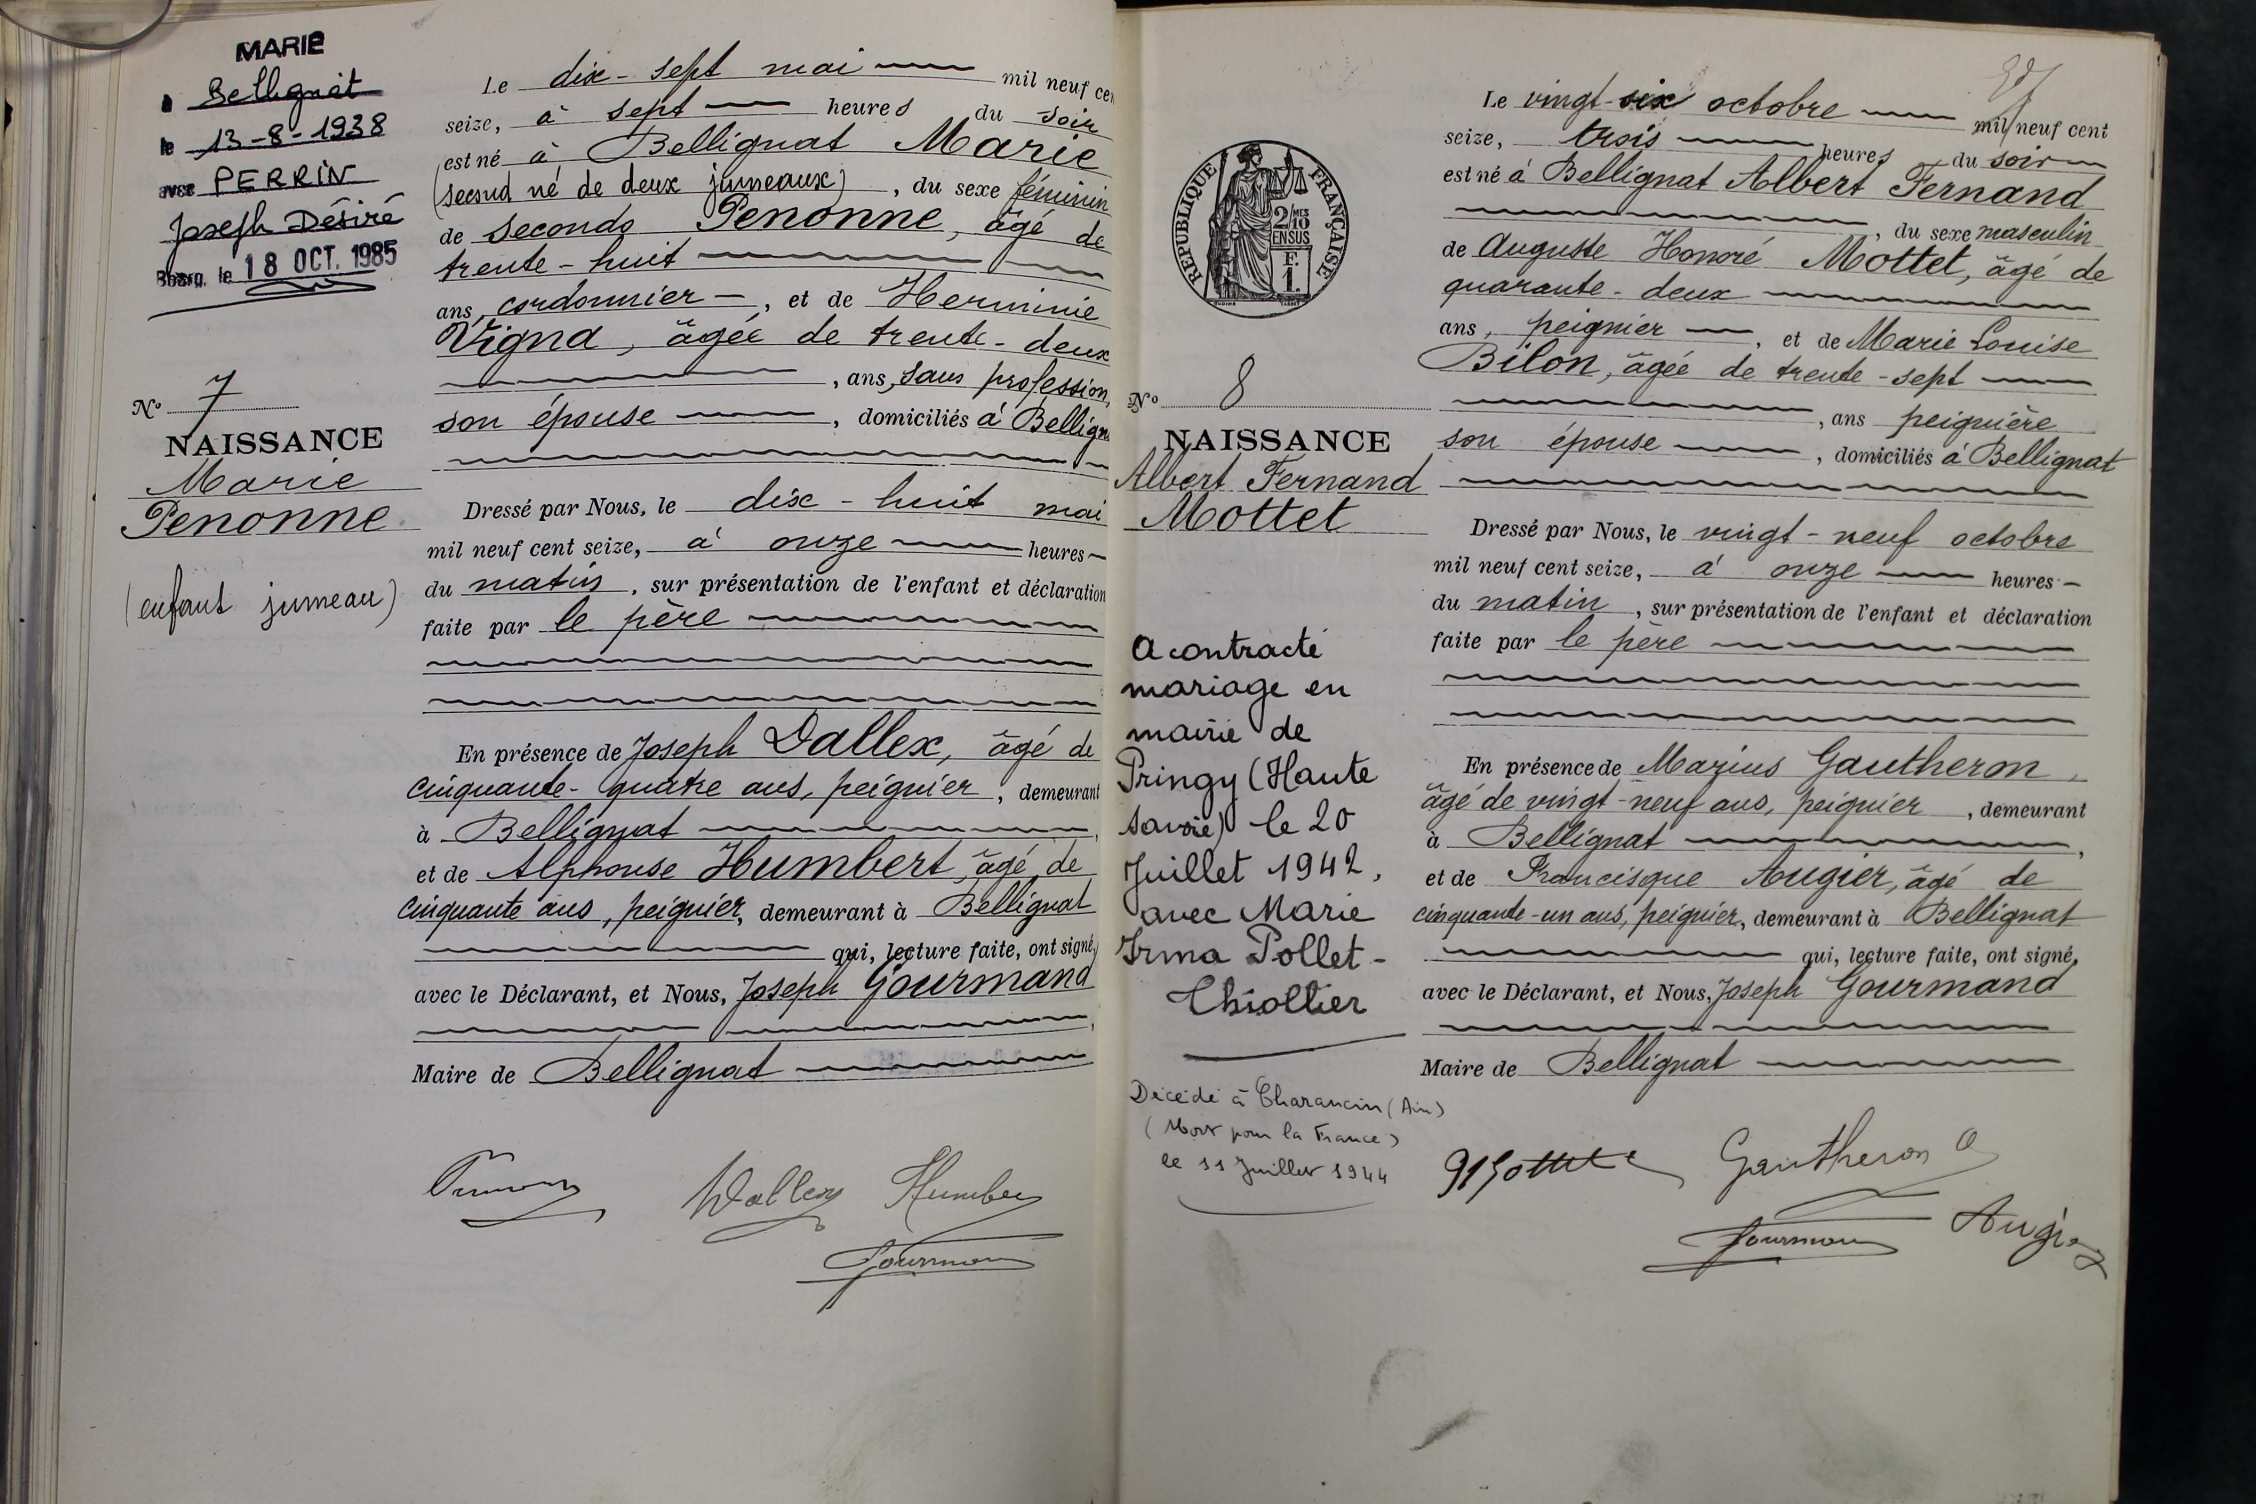 MARIE
à Bellignat
le 13-8-1938
avec PERRIN
Joseph Désiré
Bourg, le 18 OCT. 1985
No 7
NAISSANCE
Marie
Penonne
(enfant jumeau)
Le dix-sept mai mil neuf cen
seize, à sept heures du soir
est né à Bellignat Marie
(second né de deux jumeaux), du sexe féminin
de Secondo Penonne, âgé de
trente-huit
ans, cordonnier, et de Herminie
Vigna, âgée de trente-deux
, ans, sans profession,
son épouse, domiciliés à Bellign
Dressé par Nous, le dix-huit mai
mil neuf cent seize, à onze heures
du matin, sur présentation de l'enfant et déclaration
faite par le père
En présence de Joseph Dallex, âgé de
cinquante-quatre ans, peignier, demeurant
à Bellignat,
et de Alphonse Humbert, âgé de
cinquante ans, peignier, demeurant à Bellignat
qui, lecture faite, ont signé,
avec le Déclarant, et Nous, Joseph Gourmand
,
Maire de Bellignat
Dallex Humber
Gourman
REPUBLIQUE FRANÇAISE
2/MES
10
EN SUS
F.
1.
No 8
NAISSANCE
Albert Fernand
Mottet
A contracté
mariage en
mairie de
Pringy (Haute
Savoie) le 20
Juillet 1942,
avec Marie
Irma Pollet-
Thiollier
Décédé à Charancin (Ain)
(Mort pour la France)
le 11 Juillet 1944
Le vingt-six octobre mil neuf cent
seize, trois heures du soir
est né à Bellignat Albert Fernand
, du sexe masculin
de Auguste Honoré Mottet, âgé de
quarante-deux
ans, peignier, et de Marie Louise
Bilon, âgée de trente-sept
, ans peignière
son épouse, domiciliés à Bellignat
Dressé par Nous, le vingt-neuf octobre
mil neuf cent seize, à onze heures
du matin, sur présentation de l'enfant et déclaration
faite par le père
En présence de Marius Gautheron,
âgé de vingt-neuf ans, peignier, demeurant
à Bellignat,
et de Francisque Augier, âgé de
cinquante-un ans, peignier, demeurant à Bellignat
qui, lecture faite, ont signé,
avec le Déclarant, et Nous, Joseph Gourmand
Maire de Bellignat
Mottet Gautheron
Gourman Augier